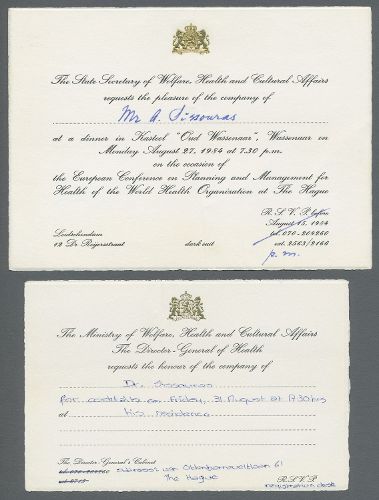 The State Secretary of Welfare, Health and Cultural Affairs
requests the pleasure of the company of
Mr A. Sissouras
at a dinner in Kasteel "Oud Wassenaar", Wassenaar on
Monday August 27, 1984 at 7.30 p.m.
on the occasion of
the European Conference on Planning and Management for
Health of the World Health Organisation at The Hague
R.S.V.P. before
August 15, 1984
tel. 070-209260
Leidschendam
12 Dr Reijersstraat
dark suit
ext. 2563/2160
p.m.
The Ministry of Welfare, Health and Cultural Affairs
The Director-General of Health
requests the honour of the company of
Dr. Sissouras
for cocktails on Friday, 31 August at 17.30 hrs
at his residence
The Director-General's Cabinet
van Oldenbarneveltlaan 61
The Hague
R.S.V.P.
registration desk